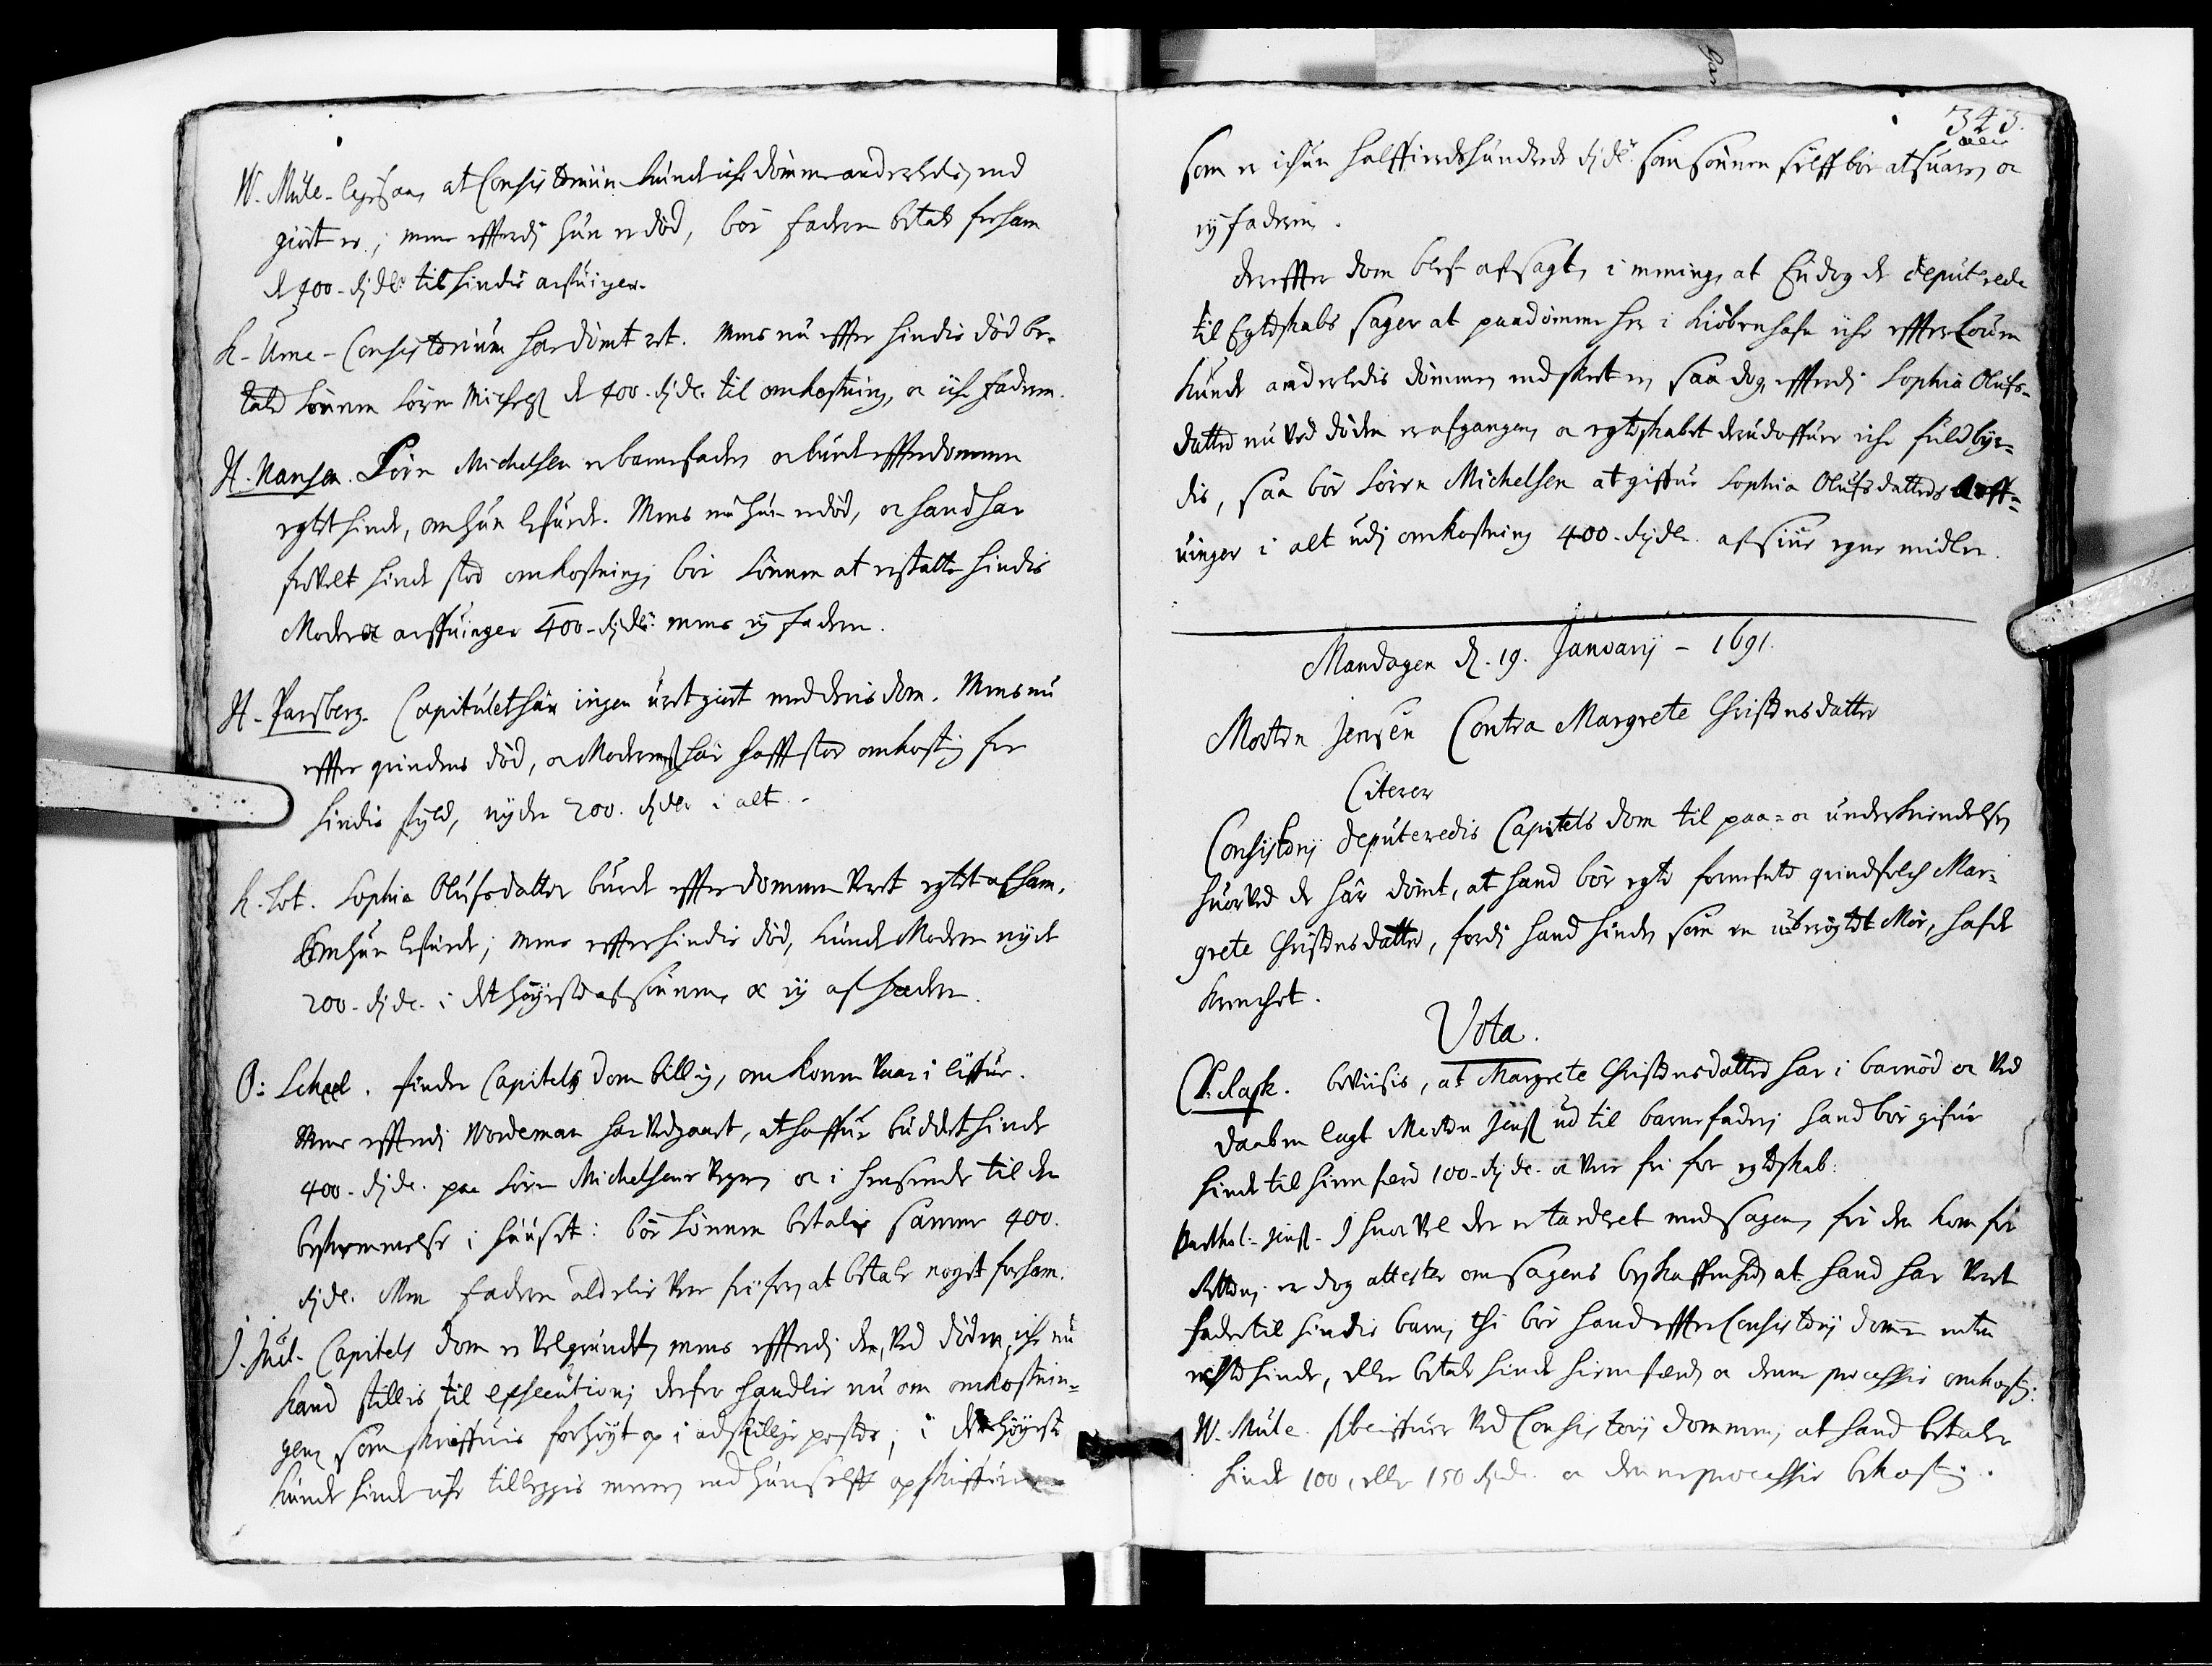 W. Mule. ligesaa, at Consistorium kunde iche dömme anderledis, end
giort er; mens efterdj hun er död, bör faderen betale for ham
de 400 rjdr. til hindis arfuinger.
K. Urne. Consistorium har dömt ret. Mens nu effter hindis död be-
taler Sönnen Sören Michels. de 400. rjdr. til omkostning, oc iche faderen.
H. Nansen. Sören Michelsen er barnefader, oc burde effter dommen
egtet hinde, om hun lefuede. Mens nu hun er död, oc hand har
stor omkostning, bör Sönnen at erstatte hindis
Moder oc arffuinger 400 rjdr: mens ej faderen.
H. Parsberg. Capitulet har ingen uret giort med deris dom. Mens nu
effter qvindens död, oc Moderen har hafft stor omkostning for
hindis skyld, nyder 200. rjdr. i alt.
K. Tot. Sophia Olufsdatter burde effter dommen veret egtet af ham,
om hun lefuede; mens effter hindis död, kunde Moderen nyde
200. rjdr. i det höyeste af sönnen, oc ej af faderen.
O: Scheel. finder Capitels dom billig, om konen vaar i liffue.
Mens efterdj Wordeman har vedgaaet, at haffue buddet hinde
400. rjdr. paa Sören Michelsens vegne, oc i henseende til den
beskemmelse i huuset: bör Sönnen betale samme 400.
rjdr. Men faderen aldelis vere frj for, at betale noget for ham.
J. Juel. Capitels dom er velgrundet, mens efterdj den, ved döden, iche nu
kand stillis til Exsecution; derfor handlis nu om omkostnin-
gen, som skriffuis for höyt op i adskillige poster; i det höyeste
kunde hinde iche tilleggis meere, end hun self opskriffuer
343.
som er ichun halffierdehundrede rjdr. som sönnen sielff bör at suare, oc
ej faderen.
Dereffter dom blef afsagt, i meening, at Endog de deputerede
til Egteskabs sager at paadömme her i Kiöbenhafn iche effter Louen
kunde anderledis dömme, end skeet er, saa dog, efterdj Sophia Olufs-
datter nu ved döden er afgangen, oc egteskabet derudoffuer iche fuldbyr-
dis, saa bör Sören Michelsen at giffue Sophia Olufsdatters Arff-
uinger i alt udj omkostning 400. rjdr. af sine egne midler.
Mandagen d. 19. Januarij - 1691.
Morten Jensen Contra Margrete Christensdatter
Citerer
Consistorij deputeredis Capitels dom til paa- oc underkiendelse,
huorved de har dömt, at hand bör egte fornefnte qvindfolch Mar-
grete Christensdatter, fordj hand hinde, som en uberögtet Mör, hafde
krenchet.
Vota.
C. Rask. beviisis, at Margrete Christensdatter har i barnöd oc ved
daaben lagt Morten Jens. ud til barnefader; hand bör gifue
hinde til hiemferd 100. rjdr. oc vere fri for egteskab:
Barthol: Jens. Ihuorvel der er tarderet med sagen, för den kom för
Retten; er dog attester om sagens beskaffenhed, at hand har veret
fader til hindis barn, thi bör hand effter Consistorij dom enten
egte hinde, eller betale hinde hiemferd, oc denne processis omkostn:
W. Mule. bliffuer ved Consistorij dommen, at hand betaler
hinde 100, eller 150 rjdr. oc denne processis bekostn:.